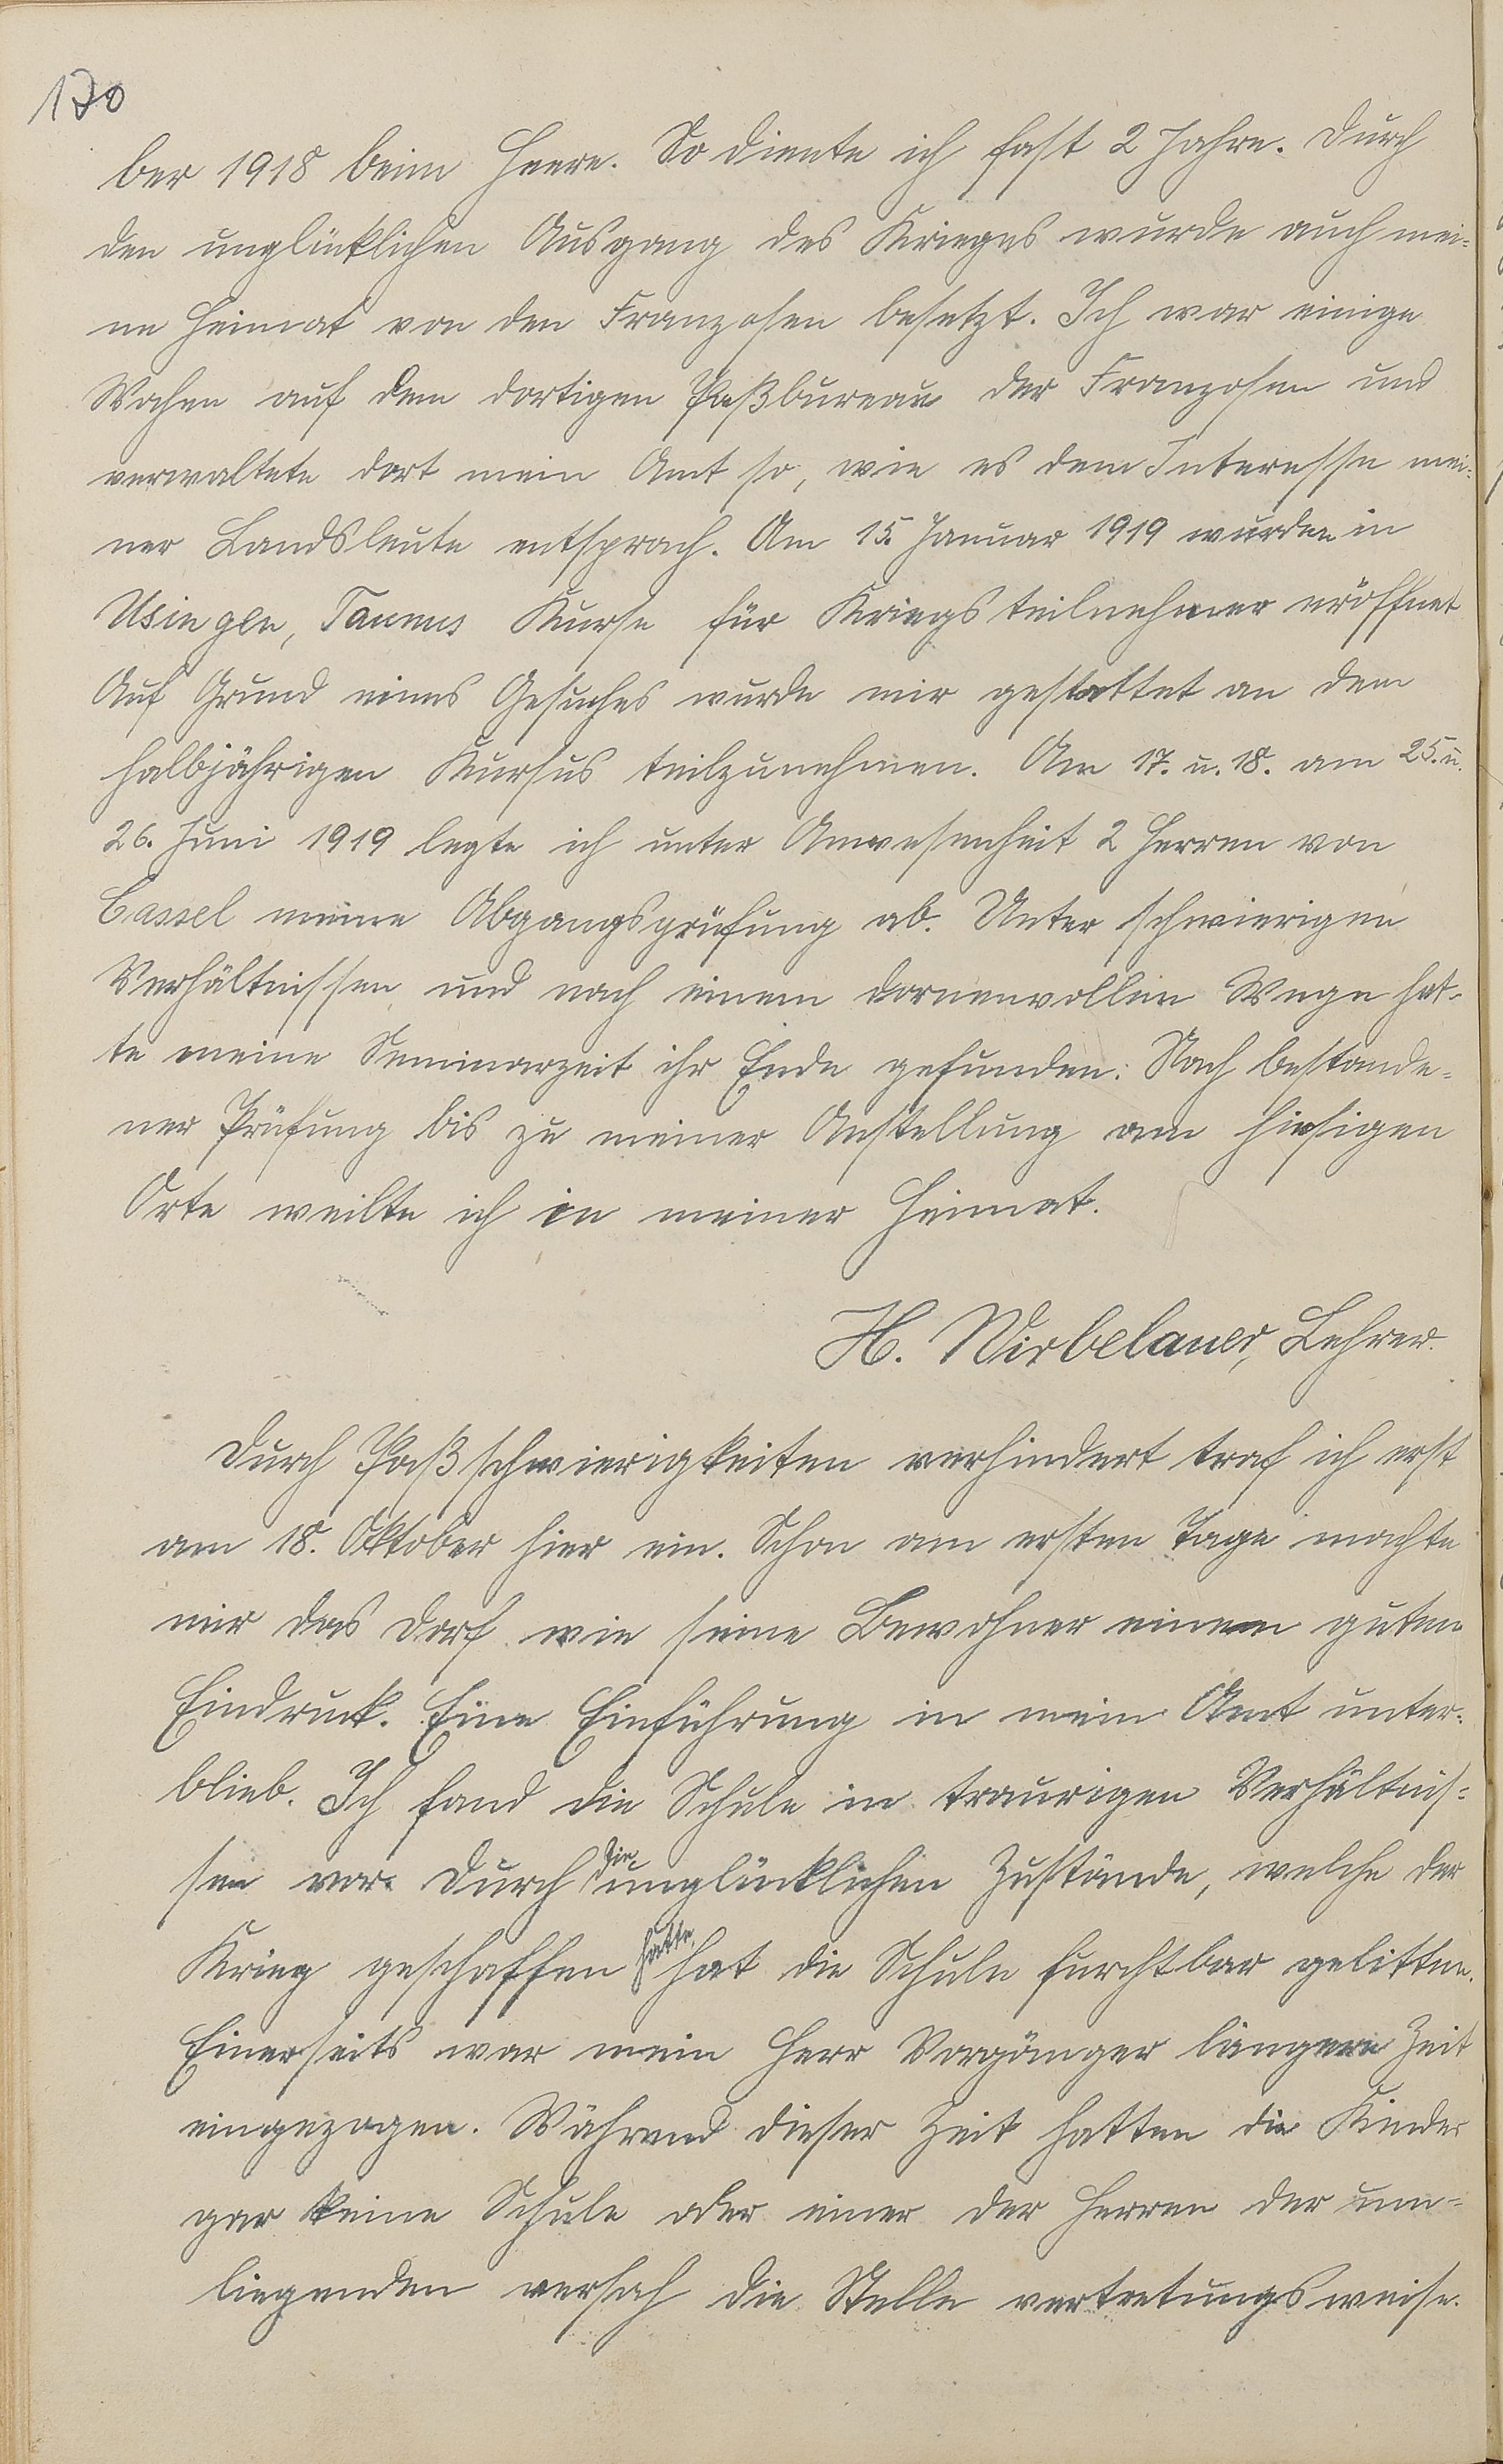 170
ber 1918 beim Heere. So diente ich fast 2 Jahre. Durch
den unglücklichen Ausgang des Krieges wurde auch mei-
ne Heimat von den Franzosen besetzt. Ich war einige
Wochen auf dem dortigen Paßbureau der Franzosen und
verwaltete dort mein Amt so, wie es dem Interesse mei-
ner Landsleute entsprach. Am 15. Januar 1919 wurden in
Usingen, Taunus Kurse für Kriegsteilnehmer eröffnet
Auf Grund eines Gesuches wurde mir gestattet an dem
halbjährigen Kursus teilzunehmen. Am 17. u. 18. am 25. u.
26. Juni 1919 legte ich unter Anwesenheit 2 Herren von
Cassel meine Abgangsprüfung ab. Unter schwierigen
Verhältnissen und nach einem dornenvollen Wege hat-
te meine Seminarzeit ihr Ende gefunden. Nach bestande-
ner Prüfung bis zu meiner Anstellung am hiesigen
Orte weilte ich in meiner Heimat.
H. Wirbelauer, Lehrer.
Durch Paßschwierigkeiten verhindert traf ich erst
am 18. Oktober hier ein. Schon am ersten Tage machte
mir das Dorf wie seine Bewohner einen guten
Eindruck. Eine Einführung in mein Amt unter-
blieb. Ich fand die Schule in traurigen Verhältnis-
sen vor. Durch die unglücklichen Zustände, welche der
Krieg geschaffen hatte, hat die Schule furchtbar gelitten.
Einerseits war mein Herr Vorgänger längere Zeit
eingezogen. Während dieser Zeit hatten die Kinder
gar keine Schule oder einer der Herren der um-
liegenden versah die Stelle vertretungsweise.